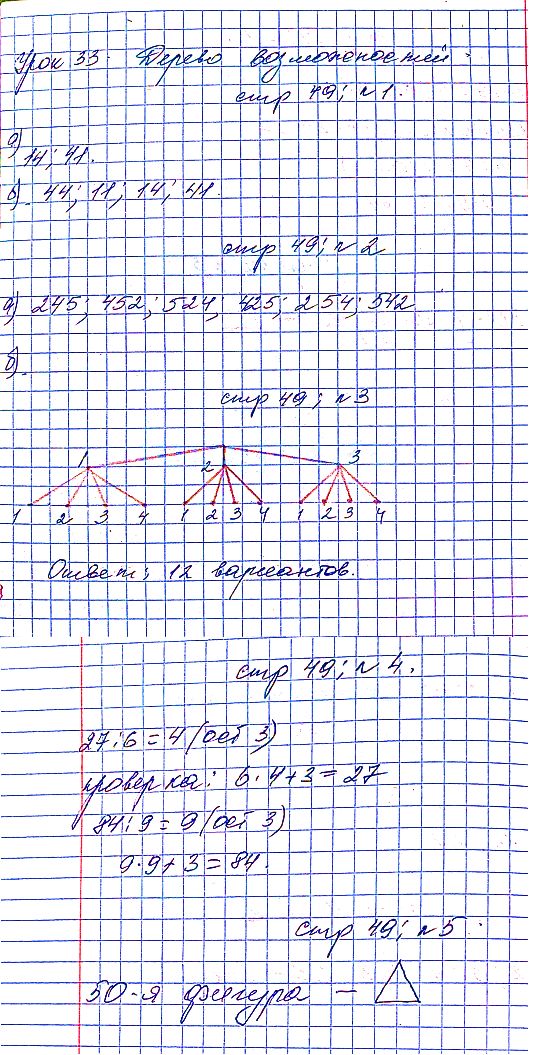 Урок 33. Дерево возможностей.
стр 49; № 1.
а) 14; 41.
б). 44; 11; 14; 41.
стр 49; № 2
а) 245; 452; 524; 425; 254; 542
б).
стр 49; № 3
1 2 3
1 2 3 4 1 2 3 4 1 2 3 4
Ответ; 12 вариантов.
стр 49; № 4.
27:6 = 4 (ост 3)
проверка: 6·4+3=27
84:9 = 9 (ост 3)
9·9+3=84.
стр 49; № 5.
50-я фигура –